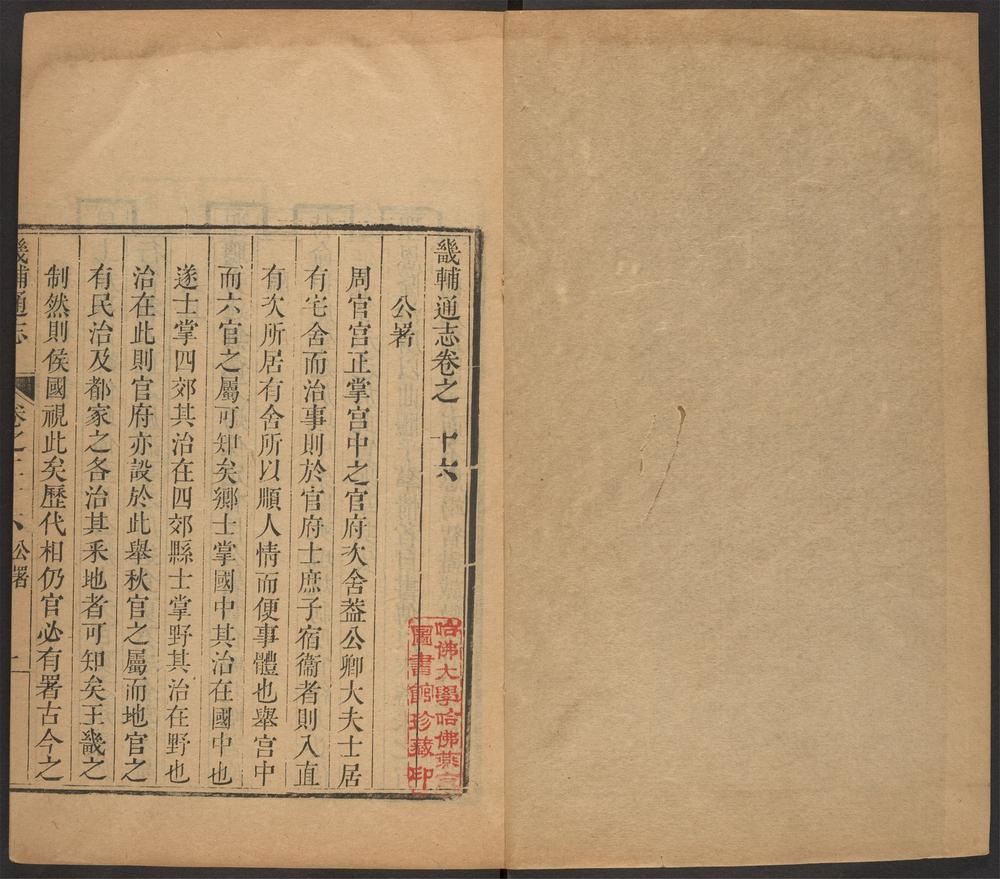 畿輔通志卷之 十六
公署
周官宫正掌宫中之官府次舍葢公卿大夫士居
有宅舍而治事則於官府士庶子宿衞者則入直
有次所居有舍所以順人情而便事體也舉宫中
而六官之屬可知矣鄉士掌國中其治在國中也
遂士掌四郊其治在四郊縣士掌野其治在野也
治在此則官府亦設於此舉秋官之屬而地官之
有民治及都家之各治其釆地者可知矣王畿之
制然則侯國視此矣歷代相仍官必有署古今之
畿輔通志 卷之二十六 公署 一
哈佛大學哈佛燕京
圖書館珍藏印